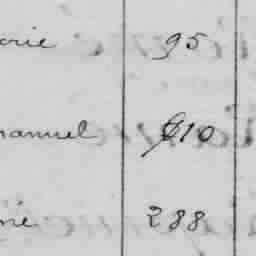 orie 95
nanuel 610
ne 288